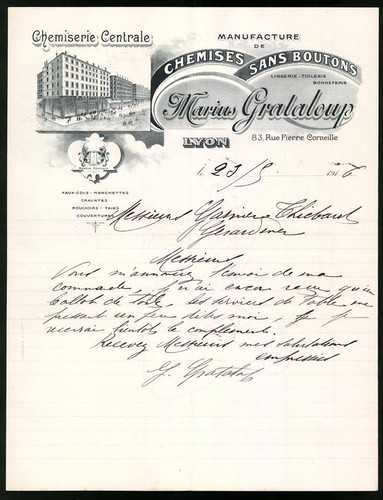 Chemiserie Centrale
MANUFACTURE
DE
CHEMISES SANS BOUTONS
LINGERIE - TOILERIE
BONNETERIE
Marius Grataloup
LYON
83, Rue Pierre Corneille
FAUX-COLS - MANCHETTES
CRAVATES
MOUCHOIRS - TAIES
COUVERTURES
23/5 1916
Messieurs Garnier Thiébaut
Gerardmer
Messieurs
Vous m'annoncez l'envoi de ma
commande, je n'ai encore reçu qu'un
ballot de toile, les services de table me
pressant un peu dites moi, si je
recevrai bientôt le complément.
Recevez Messieurs mes salutations
empressées
Grataloup